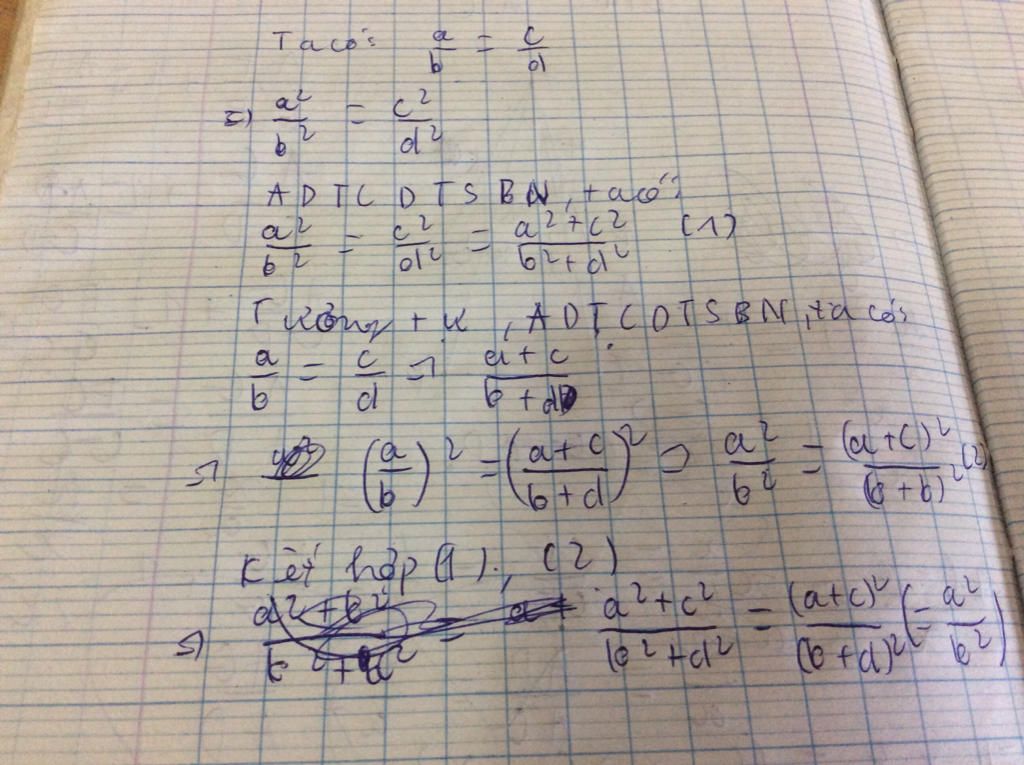 Ta có: a/b = c/d
=> a²/b² = c²/d²
ADTCDTSBN, ta có:
a²/b² = c²/d² = a²+c²/b²+d² (1)
Tương tự, ADTCDTSBN, ta có:
a/b = c/d = a+c/b+d
=> (a/b)² = (a+c/b+d)² => a²/b² = (a+c)²/(b+b)² (2)
Kết hợp (1), (2)
=> a²+c²/b²+d² = (a+c)²/(b+d)² (= a²/b²)